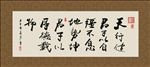 天行健
君子以自
強不息
地勢坤
君子以
厚德載
物